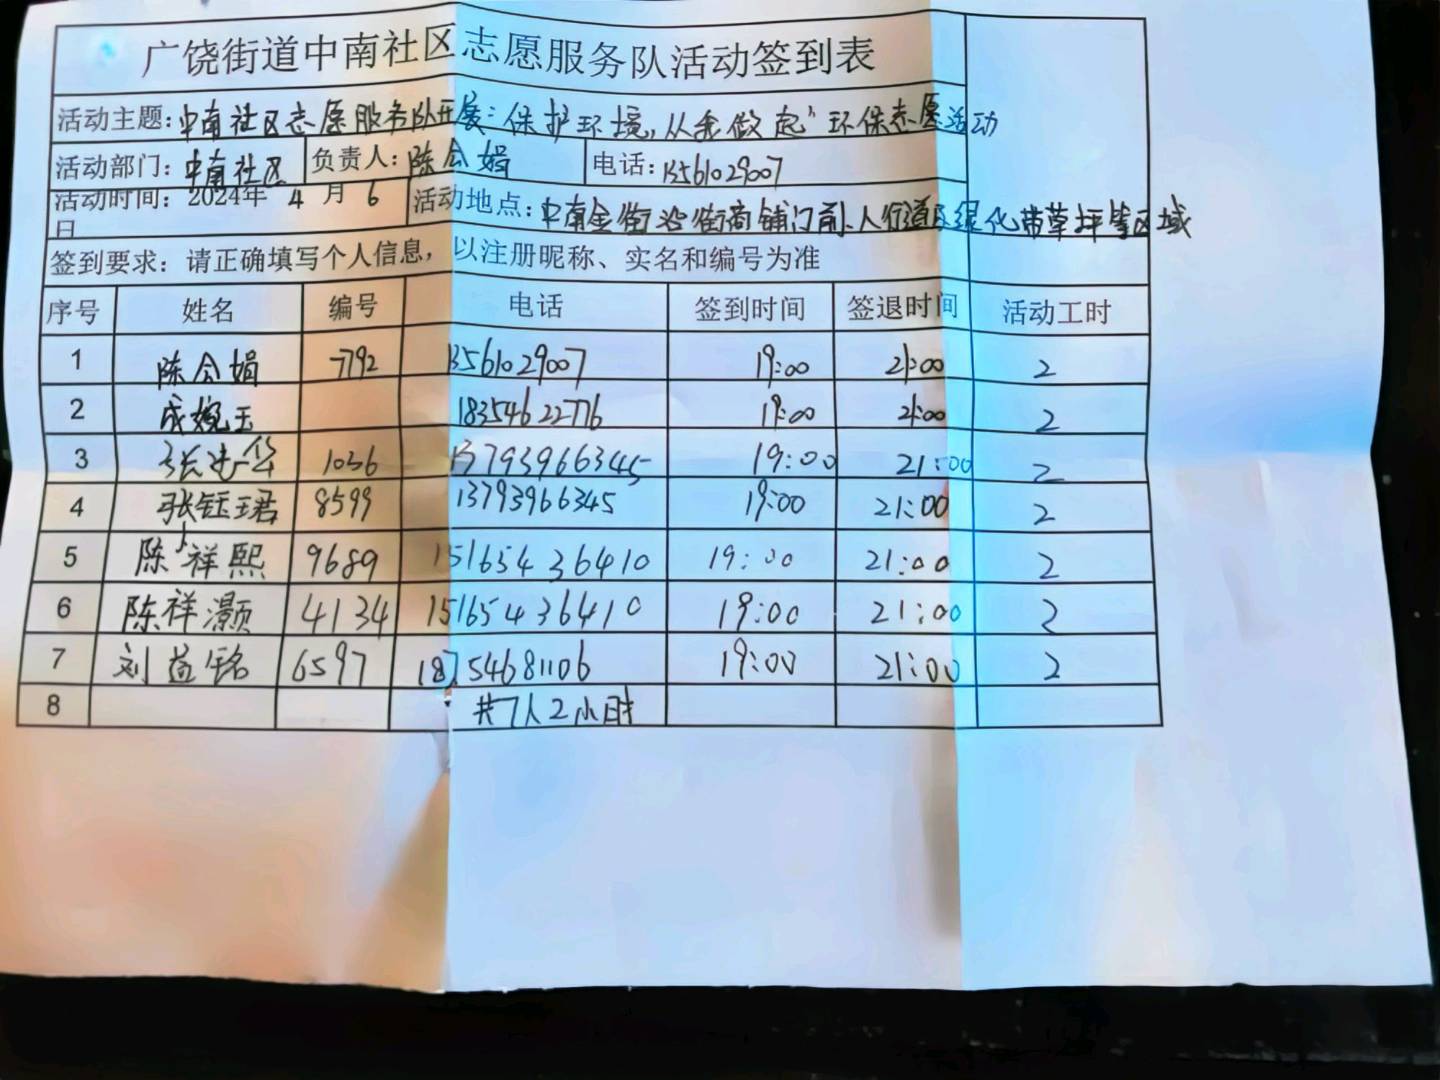 广饶街道中南社区志愿服务队活动签到表
活动主题：中南社区志愿服务队开展“保护环境，从我做起”环保志愿活动
活动部门：中南社区 负责人：陈会娟 电话：13561029007
活动时间：2024年 4 月 6 日 活动地点：中南金街沿街商铺门前、人行道及绿化带草坪等区域
签到要求：请正确填写个人信息，以注册昵称、实名和编号为准
序号 姓名 编号 电话 签到时间 签退时间 活动工时
1 陈会娟 7792 13561029007 19:00 21:00 2
2 成婉玉 18354622776 19:00 21:00 2
3 张建华 1036 13793966345 19:00 21:00 2
4 张钰珺 8599 13793966345 19:00 21:00 2
5 陈祥熙 9689 15165436410 19:00 21:00 2
6 陈祥灏 4134 15165436410 19:00 21:00 2
7 刘益铭 6597 18754681106 19:00 21:00 2
8 共7人2小时